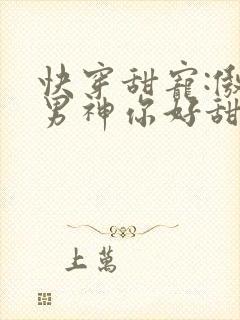 快穿甜寵:傲
男神你好甜
上萬